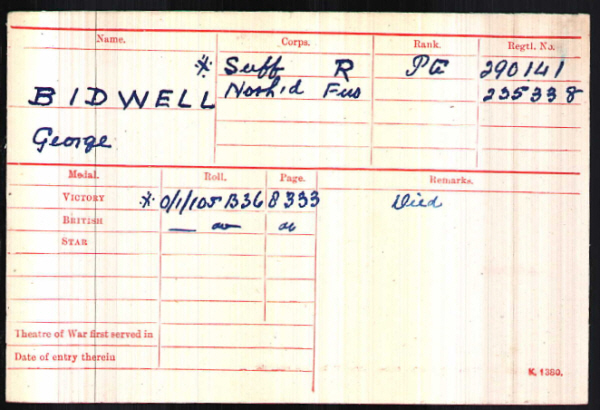 Name. Corps. Rank. Regtl. No.
* Suff R Pte 290141
BIDWELL North'd Fus 235338
George
Medal. Roll. Page. Remarks.
VICTORY * O/1/105 B36 8333 Died
BRITISH — do do
STAR
Theatre of War first served in
Date of entry therein
K. 1380.